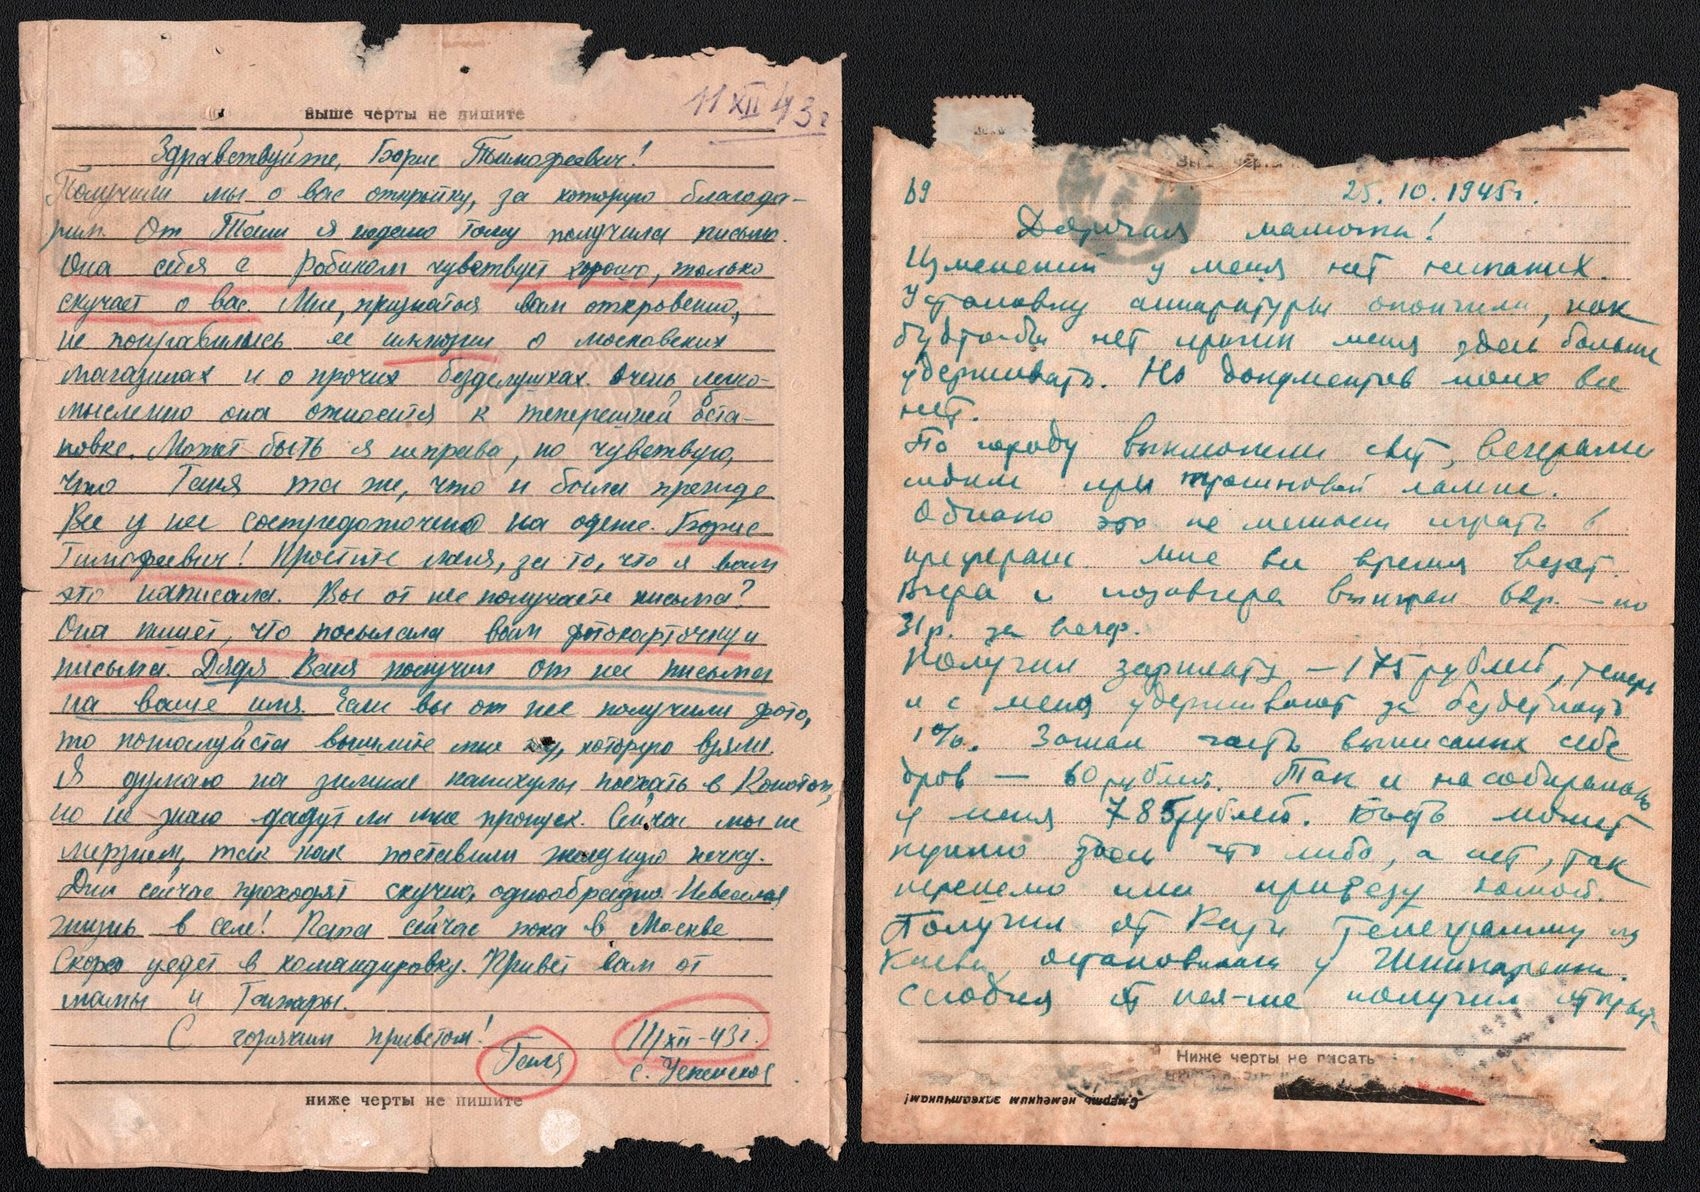 11 XII 43г
выше черты не пишите
Здравствуйте, Борис Тимофеевич!
Получили мы о вас открытку, за которую благода-
рим. От Тани я неделю тому получила письмо.
Она себя с Робиком чувствует хорошо, только
скучает о вас. Мне, признаться вам откровенно,
не понравились ее о московских
магазинах и о прочих безделушках. Очень легко-
мысленно она относится к теперешней обста-
новке. Может быть я неправа, но чувствую,
что Таня та же, что и была прежде
Все у нее сосредоточено на одеже. Борис
Тимофеевич! Простите меня, за то, что я вам
это написала. Вы от нее получаете письма?
Она пишет, что посылала вам фотокарточку и
письма. Дядя Ваня получил от нее письма
на ваше имя. Если вы от нее получили фото,
то пожалуйста вышлите мне ту, которую взяли.
Я думаю на зимние каникулы поехать в Конотоп,
но не знаю дадут ли мне пропуск. Сейчас мы не
мерзнем, так как поставили железную печку.
Дни сейчас проходят скучно, однообразно. Невеселая
жизнь в селе! Папа сейчас пока в Москве
Скоро уедет в командировку. Привет вам от
мамы и Тамары.
С горячим приветом!
Галя
11/XII-43г.
с. Успенское
ниже черты не пишите
69
25.10.1945г.
Дорогая мамочка!
Изменений у меня нет никаких.
Установку аппаратуры окончили, как
будто бы нет причин меня здесь больше
удерживать. Но документов моих все
нет.
По городу выключили свет, вечерами
сидим при керосиновой лампе.
Однако это не мешает играть в
преферанс. Мне все время везет.
Вчера и позавчера выиграл 62р. — по
31р. за вечер.
Получил зарплату — 175 рублей, теперь
и с меня удерживают за бездетность
1%. Загнал часть выписанных себе
дров — 60 рублей. Так и насобиралось
у меня 785 рублей. Быть может
куплю здесь что либо, а нет, так
перешлю или привезу домой.
Получил от Кати телеграмму из
Киева, остановилась у
Сегодня от нея-же получил открыт-
Ниже черты не писать
Смерть немецким захватчикам!